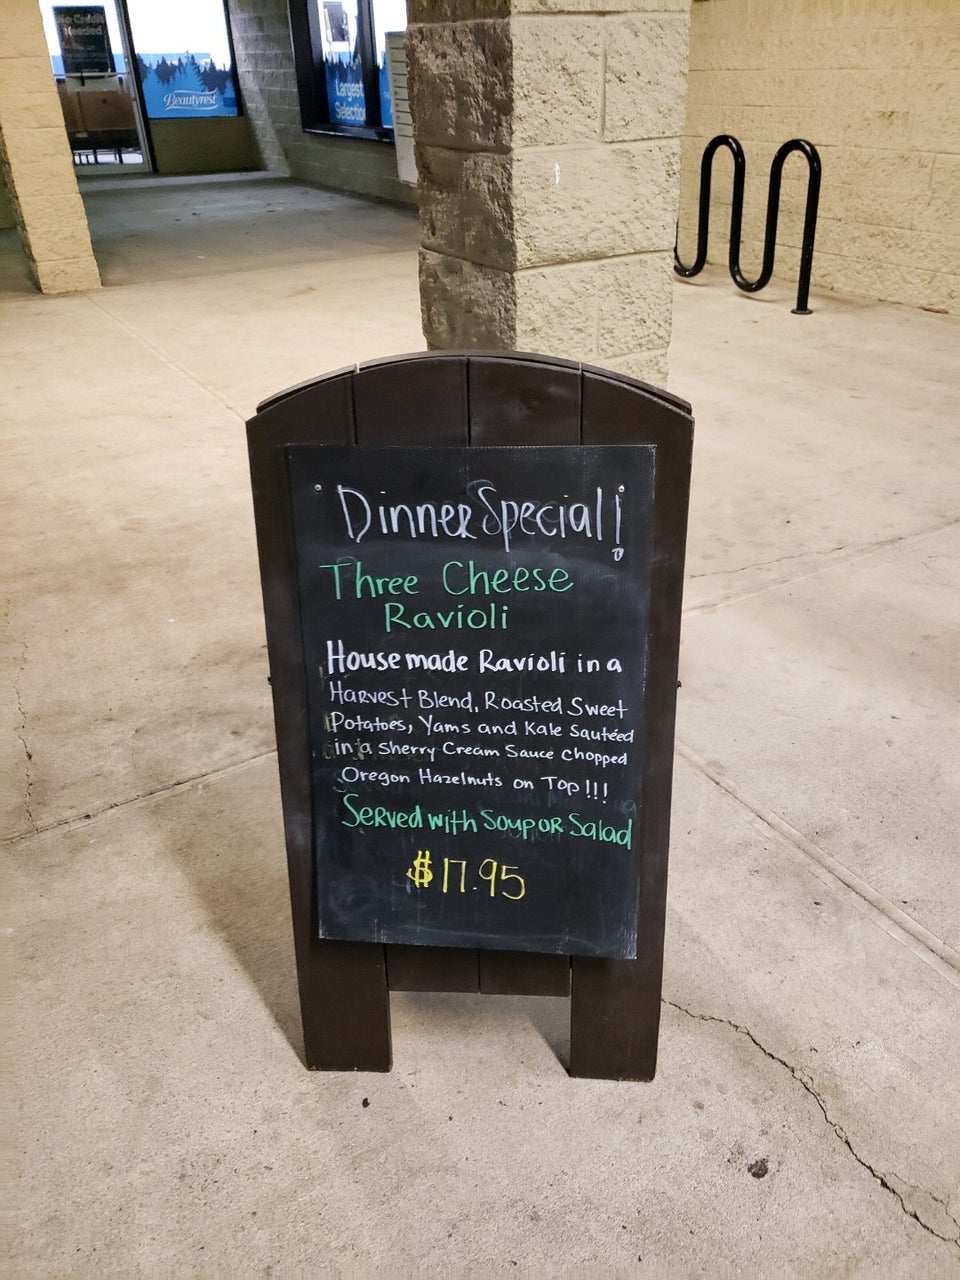 No Credit
Needed
Beautyrest
Largest
Selection
Dinner Special!
Three Cheese
Ravioli
House made Ravioli in a
Harvest Blend, Roasted Sweet
Potatoes, Yams and Kale Sautéed
in a Sherry Cream Sauce Chopped
Oregon Hazelnuts on Top!!!
Served with Soup or Salad
$17.95